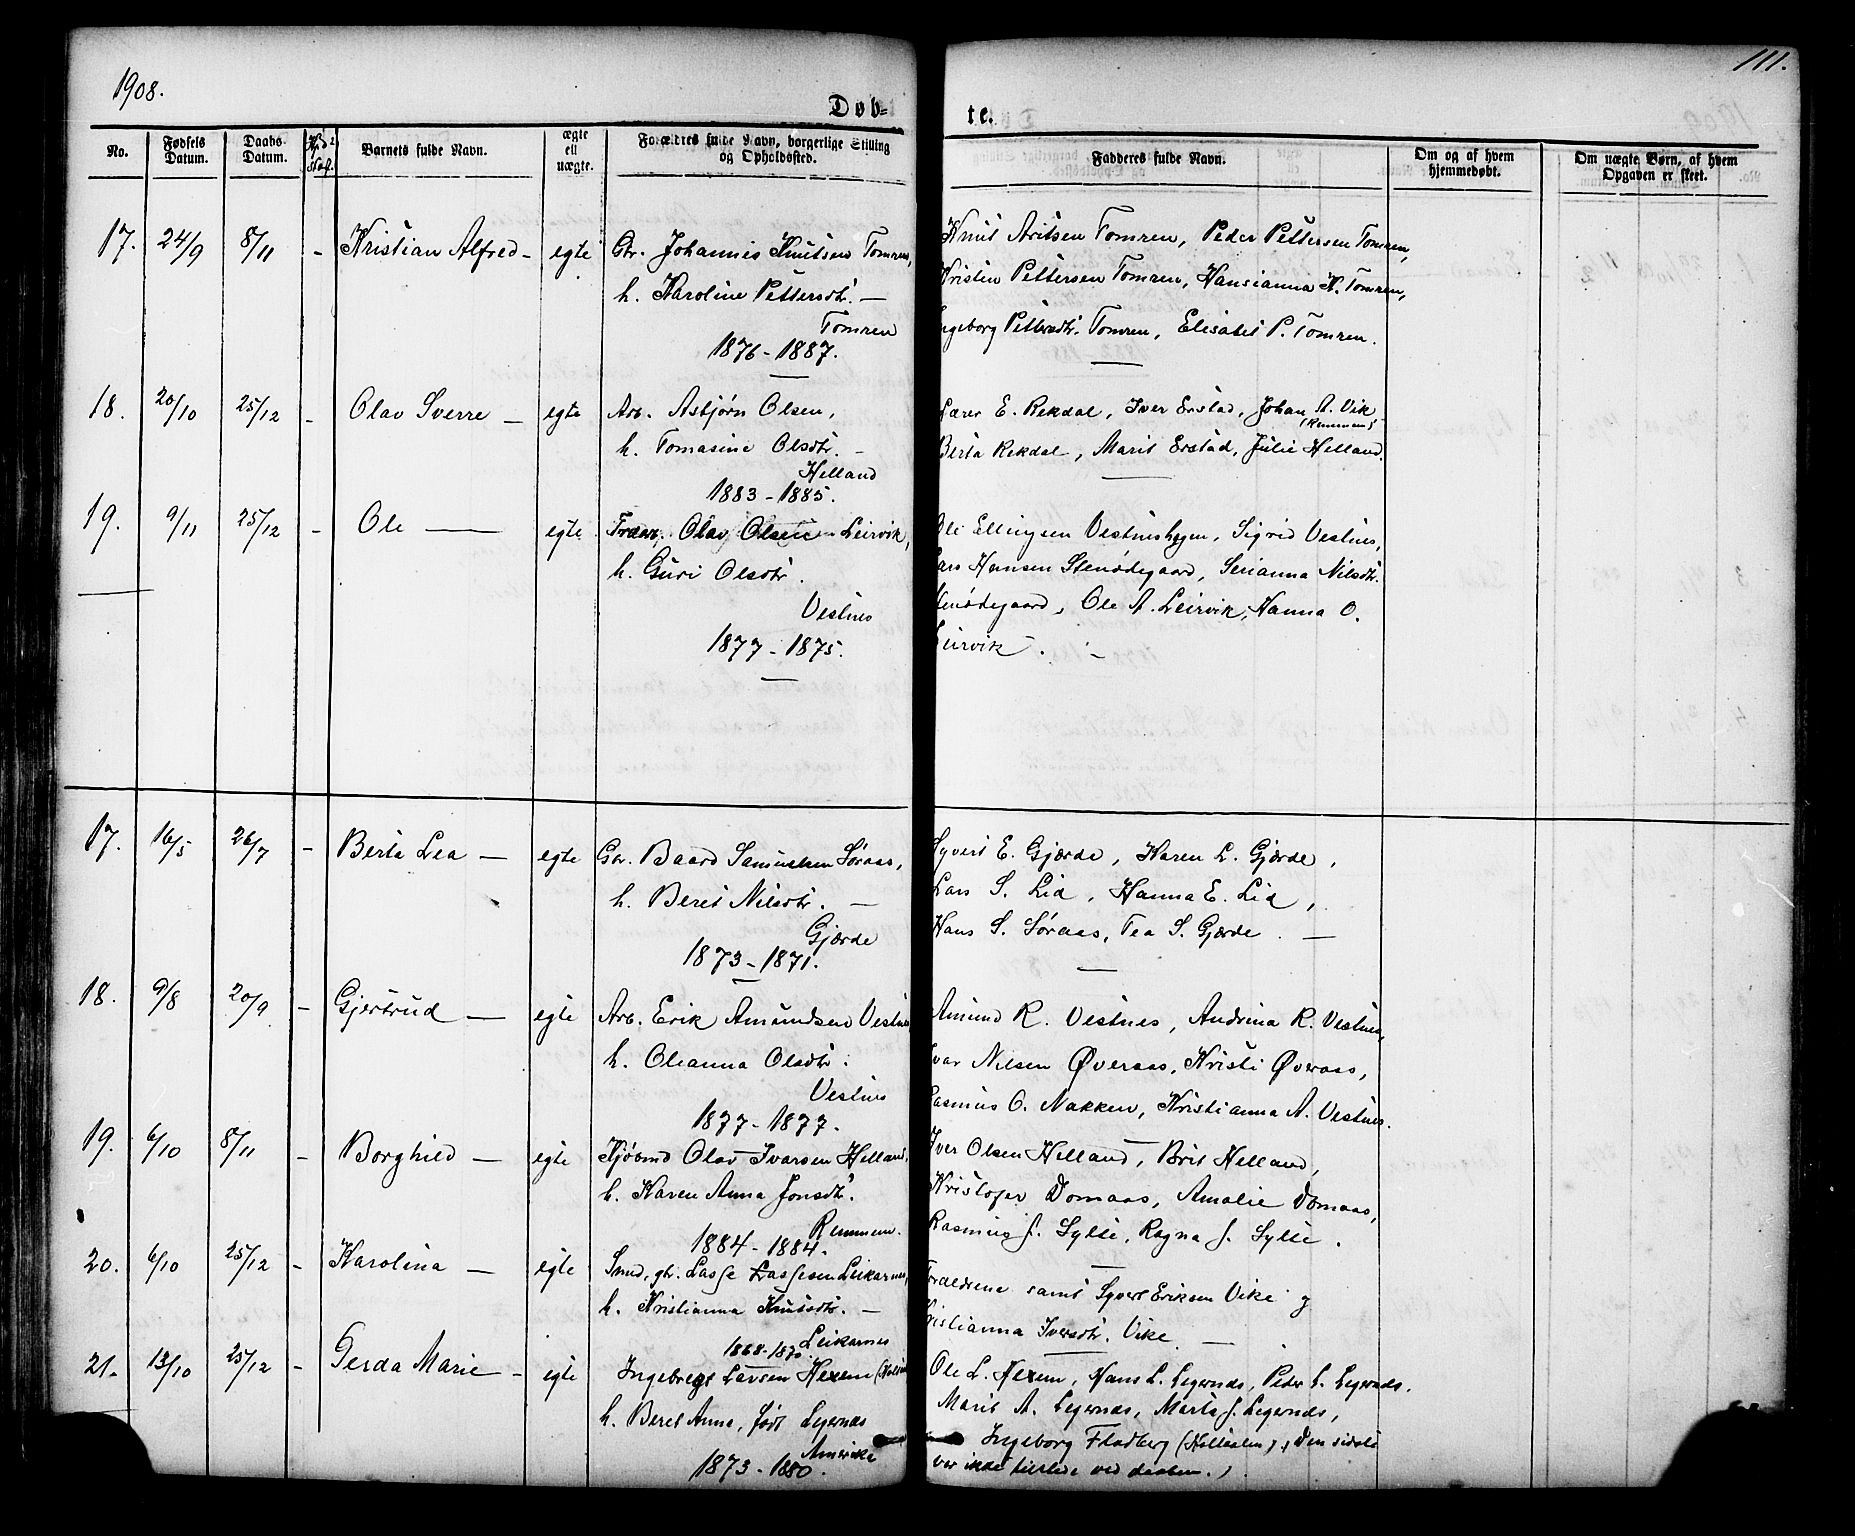 1908.
111.
Døb-
te.
No.
Fødsels Datum.
Daabs Datum.
Barnets fulde Navn.
ægte ell uægte.
Forældres fulde Navn, borgerlige Stilling og Opholdssted.
Fadderes fulde Navn.
Om og af hvem hjemmedøbt.
Om uægte Børn, af hvem Opgaven er skeet.
17. 24/9 8/11 - Kristian Alfred - egte Gbr. Johannes Knutsen Tomren,
h. Karoline Pettersdtr. —
Tomren
1876 - 1887.
Knut Aritsen Tomren, Peder Pettersen Tomren,
Kristen Pettersen Tomren, Hansianna K. Tomren,
Ingeborg Pettersdtr. Tomren, Elisabet P. Tomren.
18. 20/10 25/12 - Olav Sverre — egte Arb. Asbjørn Olsen,
h. Tomasine Olsdtr. -
Helland
1883 - 1885.
Lærer E. Rekdal, Iver Erstad, Johan A. Vik
(Remmem)
Berta Rekdal, Marit Erstad, Julie Helland.
19. 9/11 25/12 - Ole — egte Olav Olsen Leirvik,
h. Guri Olsdtr.
Vestnes
1877 - 1875.
Ole Ellingsen Sigrid Vestnes,
Lars Hansen Stenødegaard, Serianna Nilsdtr.
Stenødegaard, Ole A. Leirvik, Hanna O.
Leirvik. —
17. 16/5 26/7 - Berta Lea — egte Gbr. Baard Samuelsen Søraas,
h. Beret Nilsdtr. —
Gjærde
1873 - 1871.
Syvert E. Gjærde, Karen L. Gjærde,
Lars S. Lid, Hanna E. Lid,
Hans S. Søraas, Tea S. Gjærde. —
18. 9/8 20/9 - Gjertrud — egte Arb. Erik Amundsen Vestnes
h. Olianna Olsdtr.
Vestnes
1877 - 1877.
Amund R. Vestnes, Andrina R. Vestnes,
Ivar Nilsen Øveraas, Kristi Øveraas,
Rasmus O. Nakken, Kristianna A. Vestnes.
19. 6/10 8/11 - Borghild — egte Kjøbmd Olav Ivarsen Helland,
h. Karen Anna Jonsdtr.
Remmem.
1884 - 1884.
Iver Olsen Helland, Brit Helland,
Kristofer Domaas, Amalie Domaas,
Rasmus J. Sylte, Ragna J. Sylte.
20. 6/10 25/12 - Karolina — egte Smed, gbr. Lasse Lassesen Leikarnes,
h. Kristianna Knutsdtr. —
Leikarnes
1868 - 1870
Forældrene samt Syvert Eriksen Vike og
Kristianna Iversdtr. Vike —
21. 13/10 25/12 - Gerda Marie - egte Ingebregt Larsen Hexem
h. Beret Anna, født Legernes
Amerika
1873 - 1880.
Ole L. Hexem, Hans L. Legernes, Peder L. Legernes.
Marit A. Legernes, Marta J. Legernes,
Ingeborg Fladberg Den sidste
var ikke tilstede ved daaben.)